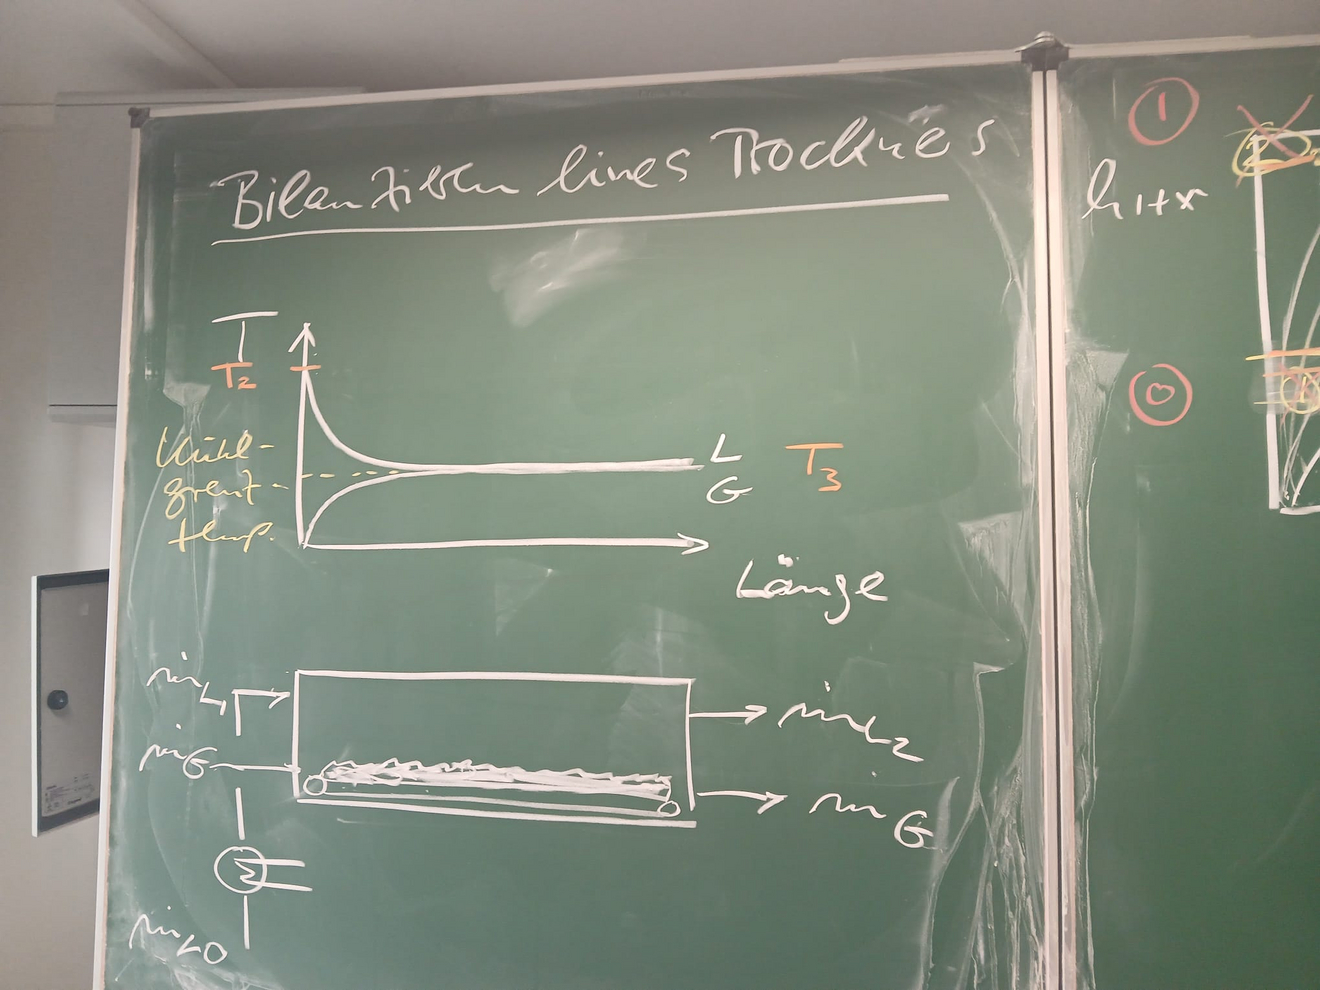 Bilanzieren eines Trockners
T
T2
Kühl-
grenz-
temp.
L
G
T3
Länge
ṁL1
ṁG
ṁL0
ṁL2
ṁG
1
h1+x
0
1